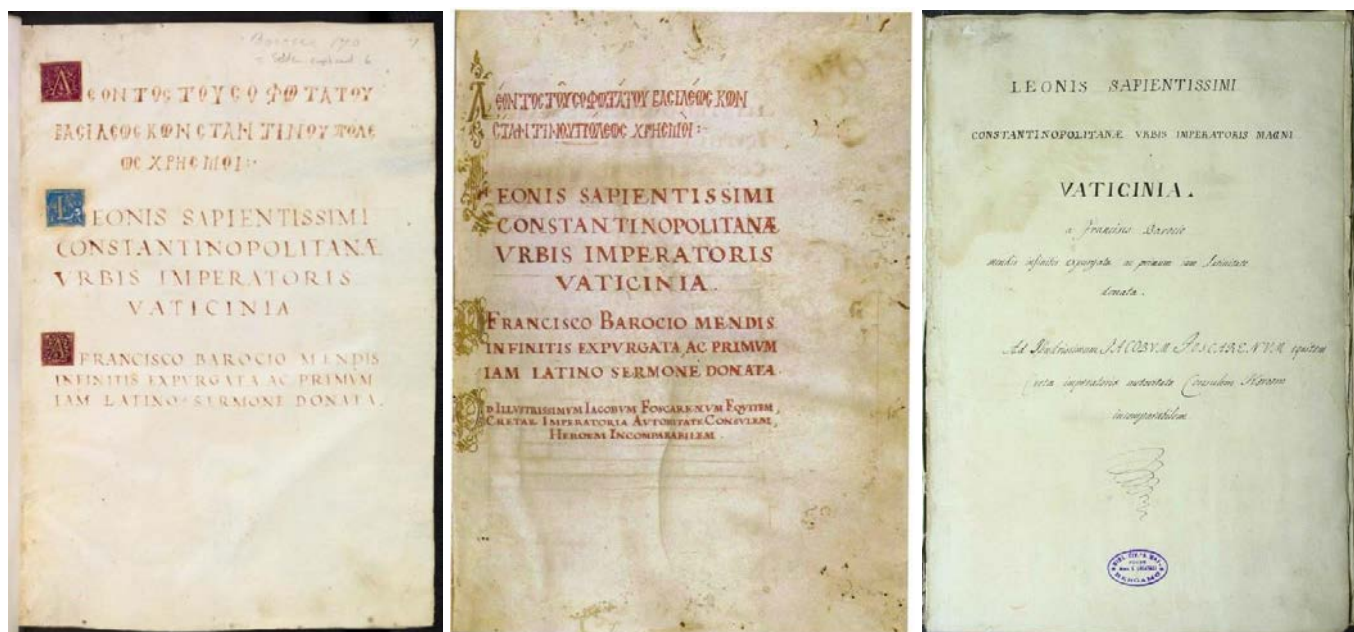 Barocci 170
ΛΕΟΝΤΟϹ ΤΟΥ ϹΟΦΩΤΑΤΟΥ
ΒΑϹΙΛΕΩϹ ΚΩΝϹΤΑΝΤΙΝΟΥΠΟΛΕ
ΩϹ ΧΡΗϹΜΟΙ :·
LEONIS SAPIENTISSIMI
CONSTANTINOPOLITANÆ
VRBIS IMPERATORIS
VATICINIA
A FRANCISCO BAROCIO MENDIS
INFINITIS EXPVRGATA AC PRIMVM
IAM LATINO SERMONE DONATA.
ΛΕΟΝΤΟϹ ΤΟΥ ϹΟΦΩΤΑΤΟΥ ΒΑϹΙΛΕΩϹ ΚΩΝ
ϹΤΑΝΤΙΝΟΥΠΟΛΕΩϹ ΧΡΗϹΜΟΙ :·
LEONIS SAPIENTISSIMI
CONSTANTINOPOLITANÆ
VRBIS IMPERATORIS
VATICINIA.
A FRANCISCO BAROCIO MENDIS
INFINITIS EXPVRGATA AC PRIMVM
IAM LATINO SERMONE DONATA.
AD ILLVSTRISSIMVM IACOBVM FOSCARENVM EQVITEM,
CRETAE IMPERATORIA AVTORITATE CONSVLEM,
HEROEM INCOMPARABILEM
LEONIS SAPIENTISSIMI
CONSTANTINOPOLITANÆ VRBIS IMPERATORIS MAGNI
VATICINIA.
a Francisco Barocio
mendis infinitis expurgata ac primum iam latinitate
donata.
Ad Illustrissimum JACOBVM FOSCARENVM equitem
Cretæ imperatoria autoritate Consulem Heroem
incomparabilem
BERGAMO